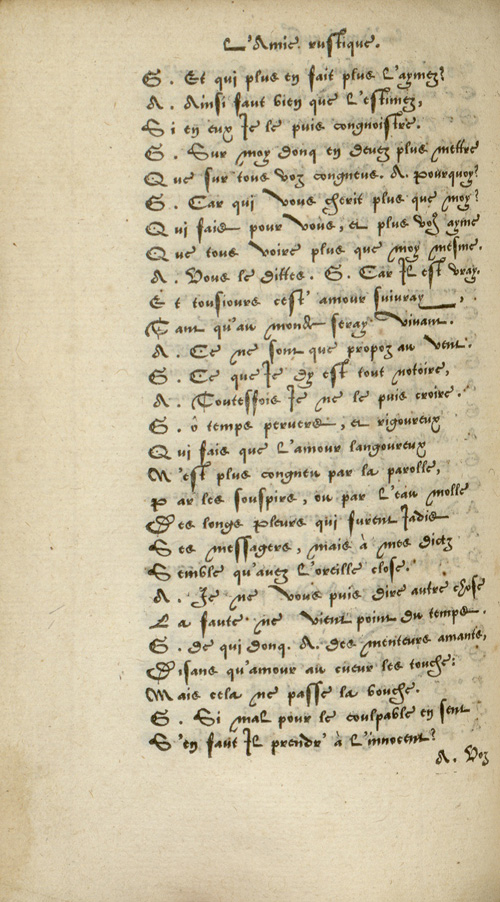 L'Amie rustique.
G. Et qui plus en fait plus l'aymez?
A. Ainsi faut bien que l'estimez,
Si en eux Je le puis congnoistre.
G. Sur moy donq en devez plus mettre
Que sur tous voz congneus. A. Pourquoy?
G. Car qui vous cherit plus que moy?
Qui fais pour vous, et plus vous ayme
Que tous voire plus que moy mesme.
A. Vous le dittes. G. Car Il est vray.
Et tousiours cest' amour suivray,
Tant qu'au monde seray vivant.
A. Ce ne sont que propoz au vent.
G. Ce que Je dy est tout notoire,
A. Toutesfois Je ne le puis croire.
G. ô temps pervers, et rigoureux
Qui fais que l'amour langoureux
N'est plus congneu par la parolle,
Par les souspirs, ou par l'eau molle
Des longs Pleurs qui furent Jadis
Ses messagers, mais à mes dictz
Semble qu'avez l'oreille close.
A. Je ne vous puis dire autre chose
La faute ne vient point du temps.
G. de qui donq. A. des menteurs amants,
Disans qu'amour au cueur les touche:
Mais cela ne passe la bouche.
G. Si mal pour le coulpable en sent
S'en faut Il prendr' à l'innocent?
A. Voz